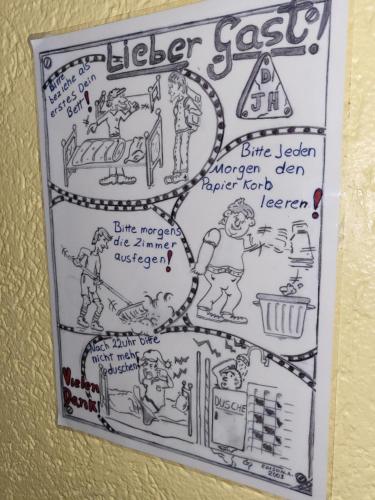 Lieber Gast!
DJH
Bitte
beziehe als
erstes Dein
Bett!
Bitte Jeden
Morgen den
Papier Korb
leeren!
Bitte morgens
die Zimmer
ausfegen!
Nach 22 Uhr bitte
nicht mehr
duschen
DUSCHE
Vielen
Dank!
2003